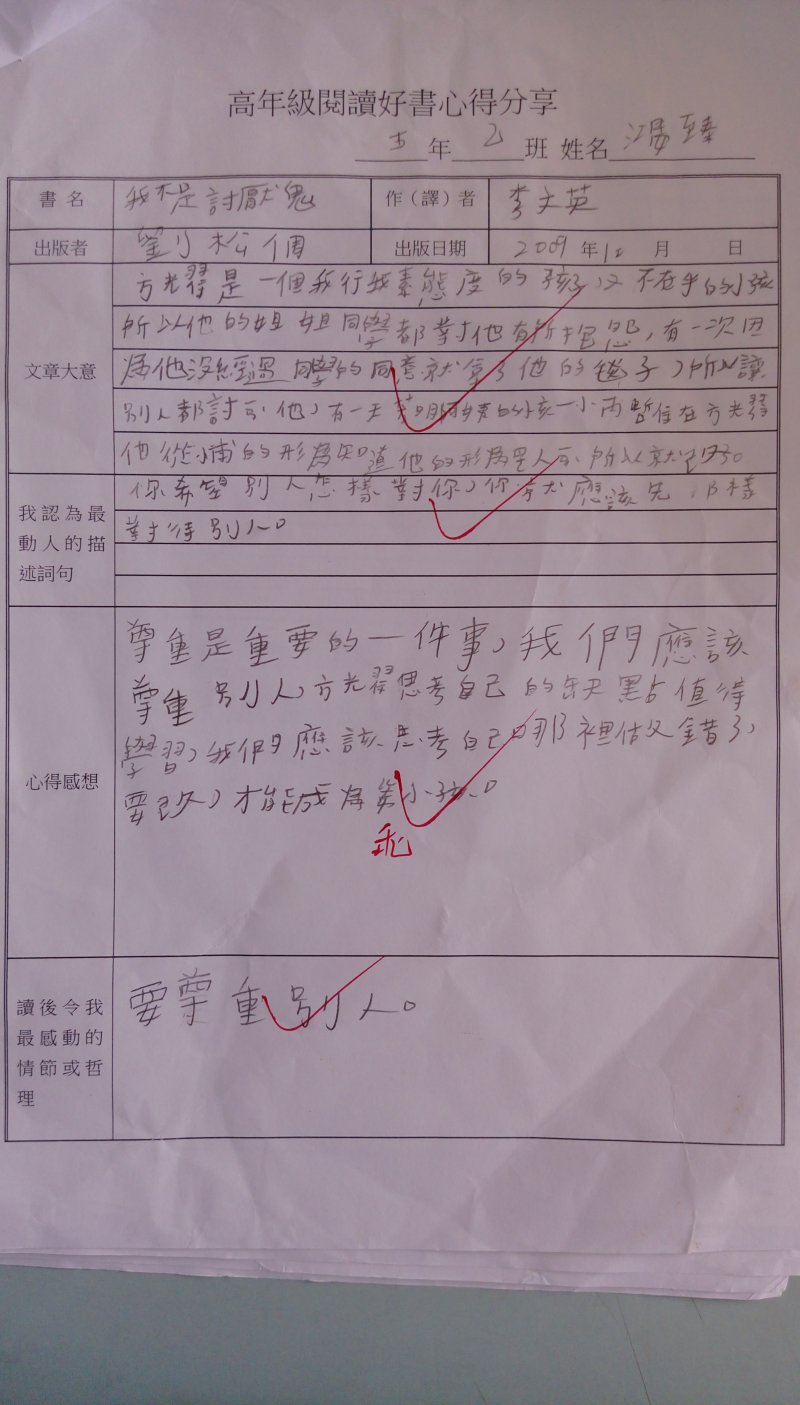 高年級閱讀好書心得分享
五年乙班 姓名 鴻臻
書名 我不是討厭鬼 作(譯)者 李文英
出版者 劉小松個 出版日期 2009年10月 日
文章大意
方光翟是一個我行我素態度的孩子,又不在乎的小孩
所以他的姐姐同學都對他有所抱怨,有一次因
為他沒經過同學的同意就拿了他的毽子,所以讓
別人都討 他,有一天 的孩 小 暫住在方光翟
他從小 的形為知道他的形為 人 所以就
我認為最動人的描述詞句
你希望別人怎樣對你,你就應該先那樣
對待別人。
心得感想
尊重是重要的一件事,我們應該
尊重別人,方光翟思考自己的缺點值得
學習,我們應該思考自己哪裡做錯了,
要改,才能成為 小孩。
乖
讀後令我最感動的情節或哲理
要尊重別人。